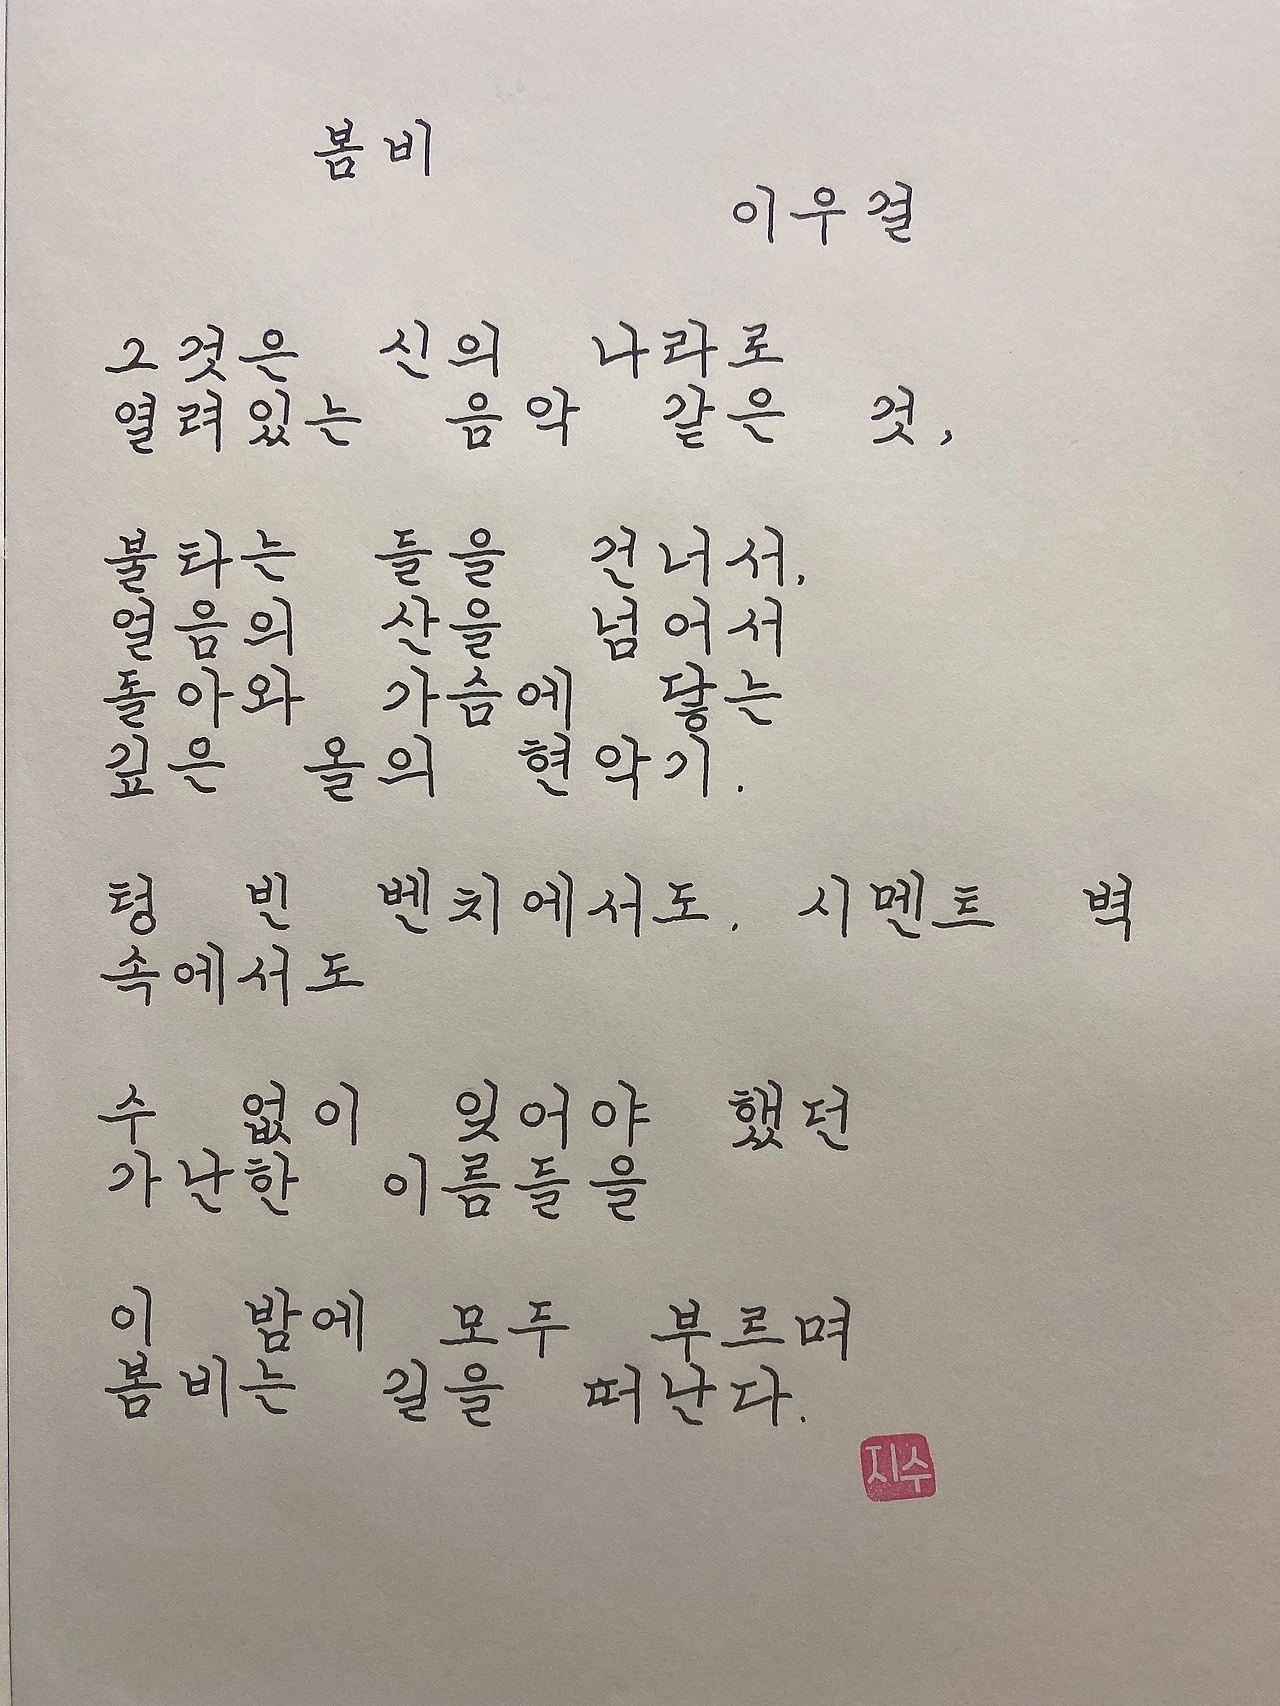 봄비
이우걸
그것은 신의 나라로
열려있는 음악 같은 것,
불타는 들을 건너서,
얼음의 산을 넘어서
돌아와 가슴에 닿는
깊은 올의 현악기.
텅 빈 벤치에서도. 시멘트 벽
속에서도
수 없이 잊어야 했던
가난한 이름들을
이 밤에 모두 부르며
봄비는 길을 떠난다.
지수